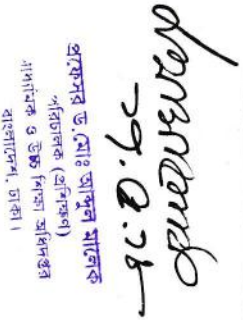 প্রফেসর ড. মোঃ আব্দুল মালেক
পরিচালক (প্রশিক্ষণ)
মাধ্যমিক ও উচ্চ শিক্ষা অধিদপ্তর
বাংলাদেশ, ঢাকা।